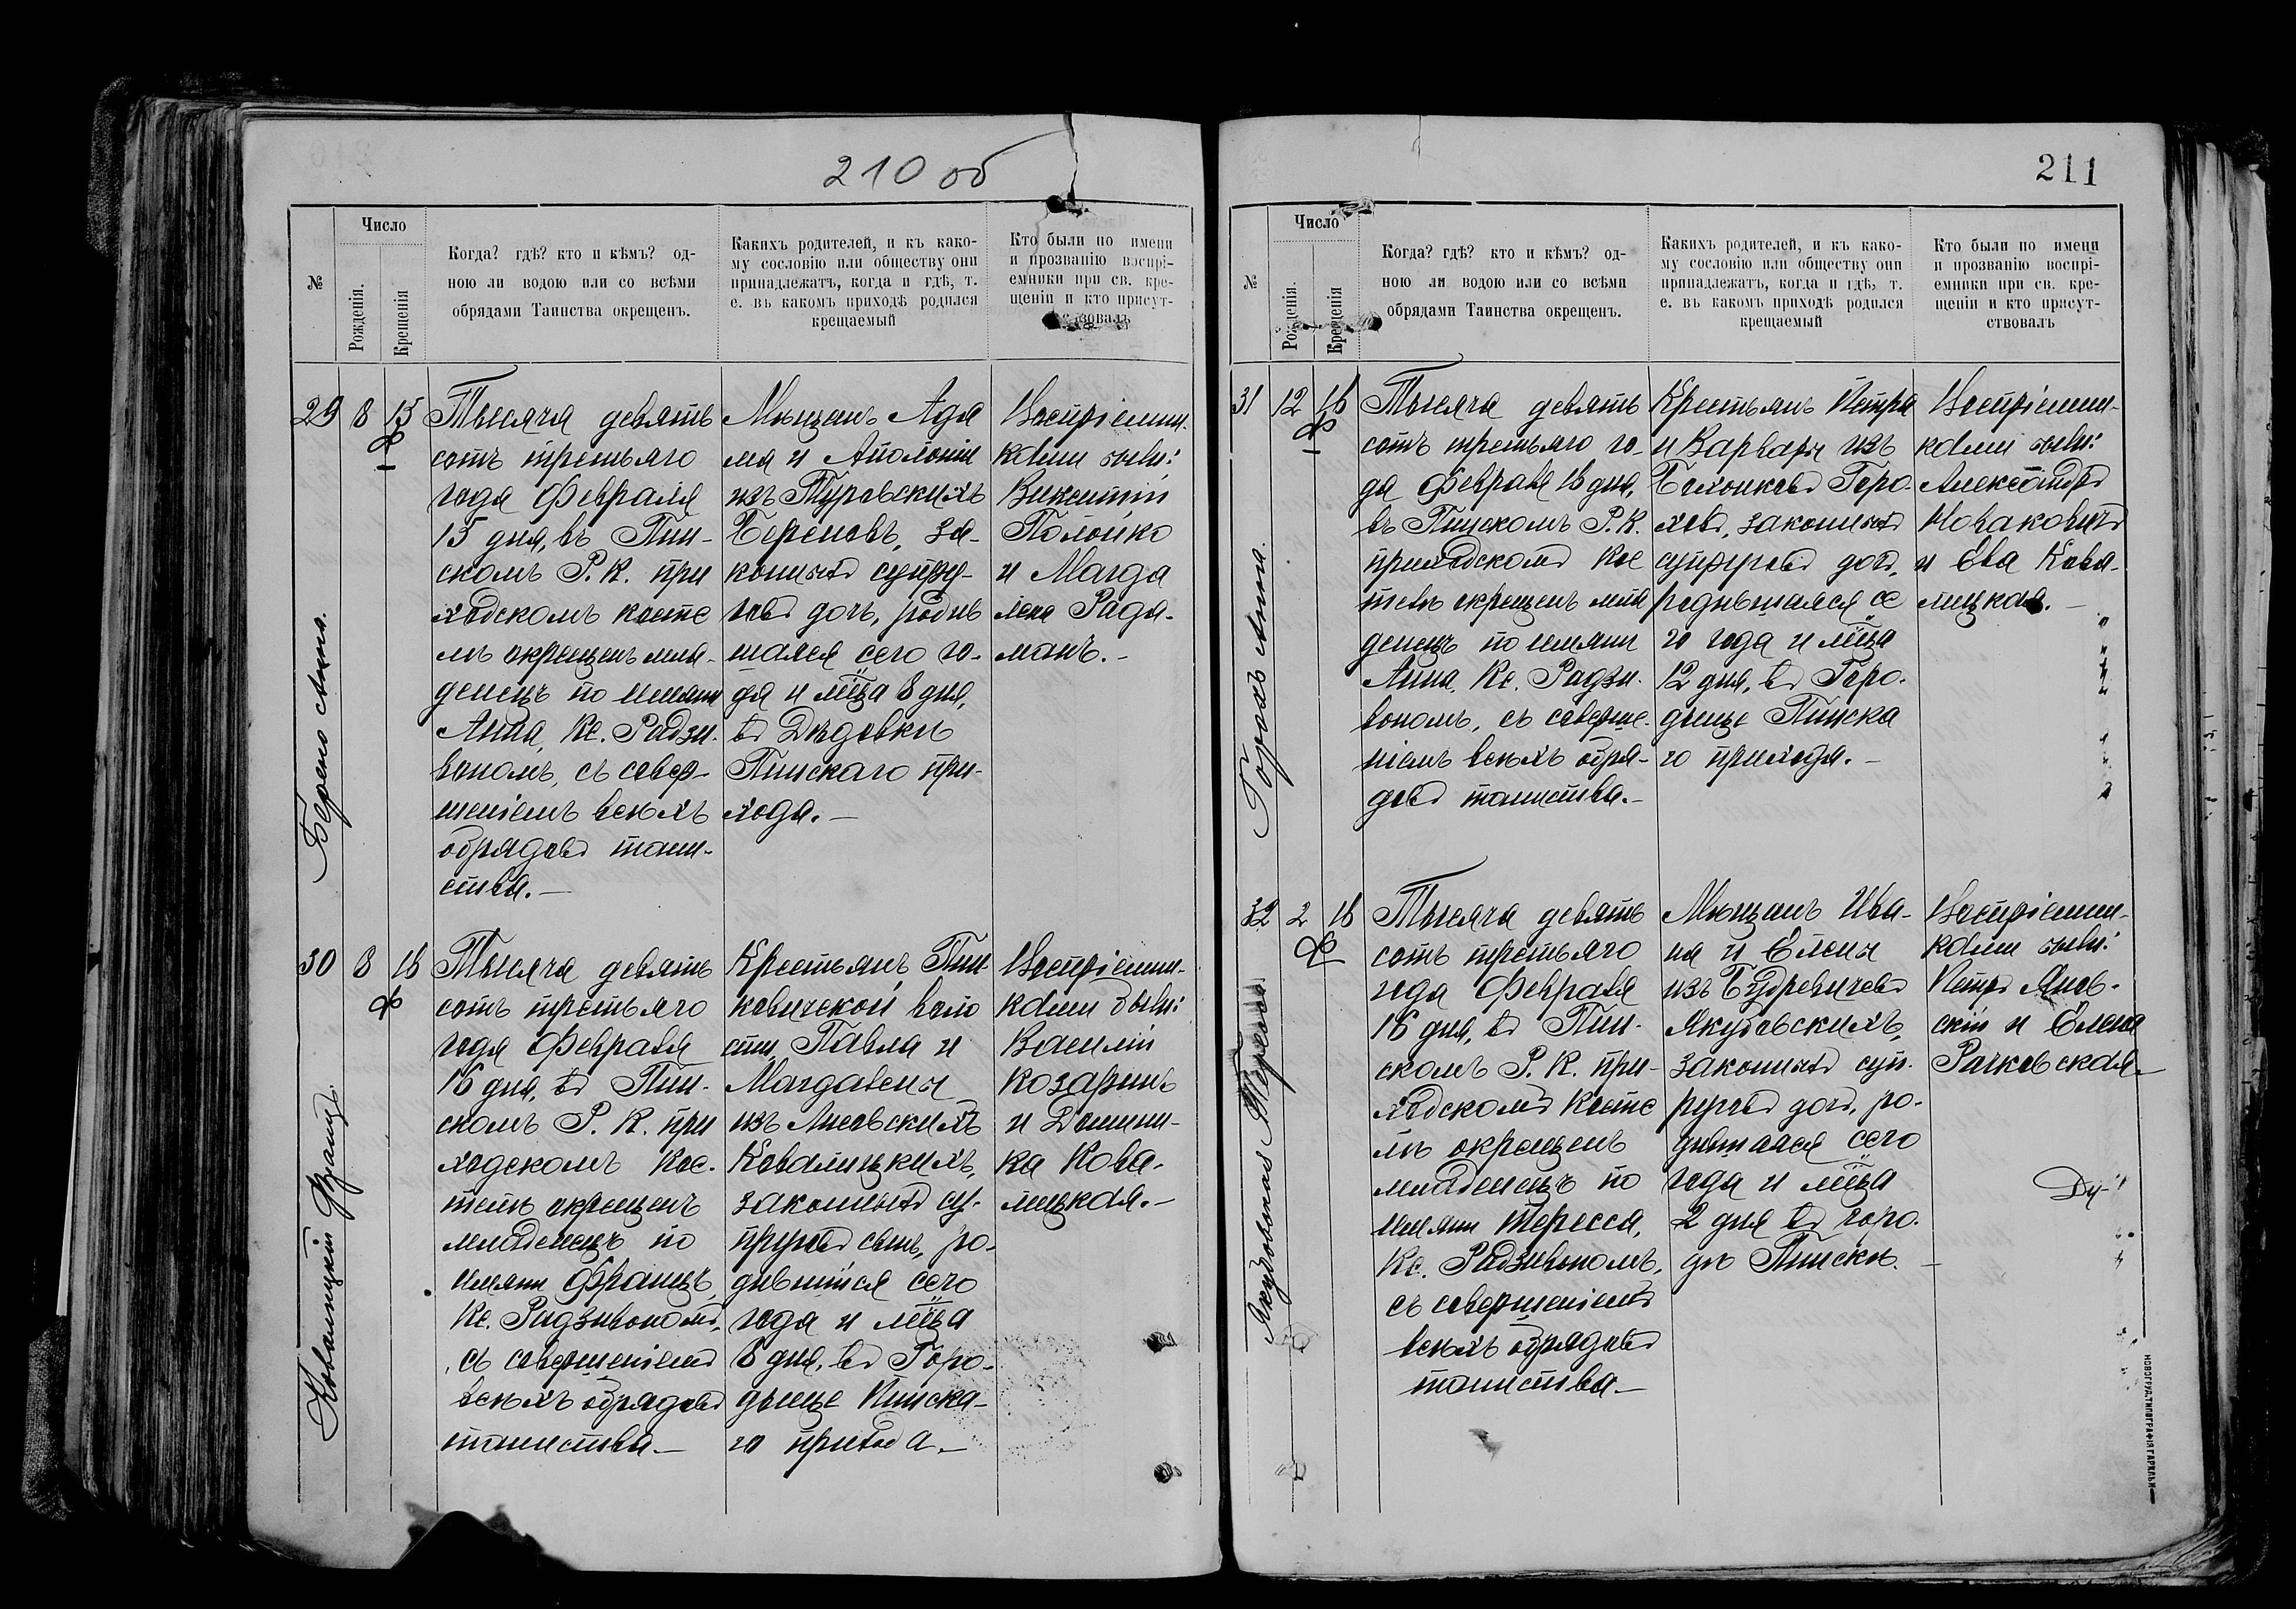 210 об
№
Число
Рожденія.
Крещенія
Когда? гдѣ? кто и кѣмъ? од-
ною ли водою или со всѣми
обрядами Таинства окрещенъ.
Какихъ родителей, и къ како-
му сословію или обществу они
принадлежатъ, когда и гдѣ, т.
е. въ какомъ приходѣ родился
крещаемый
Кто были по имени
и прозванію воспрі-
емники при св. кре-
щеніи и кто присут-
ствовалъ
Берено Анна.
29 8 15
Тысяча девять
сотъ третьяго
года Февраля
15 дня, въ Пин-
скомъ Р. К. при
ходскомъ косте
лѣ окрещенъ мла-
денецъ по имени
Анна, Кс. Радзи-
вономъ, съ совер-
шеніемъ всѣхъ
обрядовъ таин-
ства.—
Мѣщанъ Ада
ма и Аполоніи
изъ Туровскихъ
Береновъ, за-
конныхъ супру-
говъ дочь, родив
шаяся сего го-
да и мѣца 8 дня,
въ Дѣдовкѣ
Пинскаго при-
хода.—
Воспріемни-
ками были:
Викентій
Полойко
и Магда
лена Рада-
манъ.-
Ковалицкій Францъ.
30 8 16
Тысяча девять
сотъ третьяго
года Февраля
16 дня, въ Пин-
скомъ Р. К. при
ходскомъ кос-
телѣ окрещенъ
младенецъ по
имени Францъ,
Кс. Радзивономъ,
съ совершеніемъ
всѣхъ обрядовъ
таинства.—
Крестьянъ Пин
ковичской воло
сти, Павла и
Магдалены
изъ Лисовскихъ
Ковалицкихъ,
законныхъ су-
пруговъ сынъ, ро-
дившійся сего
года и мѣца
8 дня, въ Горо-
дыще Пинска-
го прихода.—
Воспріемни-
ками были:
Василій
Козаринъ
и Домини-
ка Кова-
лицкая.—
211
№
Число
Рожденія.
Крещенія
Когда? гдѣ? кто и кѣмъ? од-
ною ли водою или со всѣми
обрядами Таинства окрещенъ.
Какихъ родителей, и къ како-
му сословію или обществу они
принадлежатъ, когда и гдѣ, т.
е. въ какомъ приходѣ родился
крещаемый
Кто были по имени
и прозванію воспрі-
емники при св. кре-
щеніи и кто присут-
ствовалъ
Горохъ Анна.
31 12 16
Тысяча девять
сотъ третьяго го-
да Февраля 16 дня,
въ Пинскомъ Р. К.
приходскомъ кос
телѣ окрещенъ мла
денецъ по имени
Анна, Кс. Радзи-
вономъ, съ соверше-
ніемъ всѣхъ обря-
довъ таинства.—
Крестьянъ Петра
и Варвары изъ
Горо-
ховъ, законныхъ
супруговъ дочь,
родившаяся се
го года и мѣца
12 дня, въ Горо-
дыще Пинска
го прихода.—
Воспріемни-
ками были:
Александръ
Новаковичъ
и Ева Кова-
лицкая.—
Якубовская Тересса
32 2 16
Тысяча девять
сотъ третьяго
года Февраля
16 дня, въ Пин-
скомъ Р. К. при-
ходскомъ косте
лѣ окрещенъ
младенецъ по
имени Тересса,
Кс. Радзивономъ,
съ совершеніемъ
всѣхъ обрядовъ
таинства.—
Мѣщанъ Ива-
на и Елены
изъ Будревичевъ
Якубовскихъ,
законныхъ суп-
руговъ дочь, ро-
дившаяся сего
года и мѣца
2 дня въ горо-
дѣ Пинскѣ.—
Воспріемни-
ками были:
Петръ Янов-
скій и Елена
Рачковская.—
НОВОГРУД. ТИПОГРАФІЯ